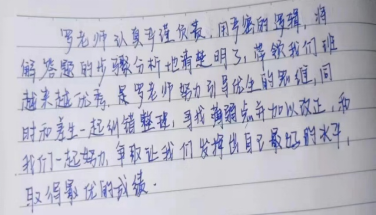 罗老师认真严谨负责，用严密的逻辑，将
解答题的步骤分析地清楚明了，带领我们班
越来越优秀，是罗老师努力引导优生的思维，同
时和差生一起纠错整理，寻找薄弱点并加以改正，和
我们一起努力，争取让我们发挥出自己最好的水平，
取得最优的成绩．